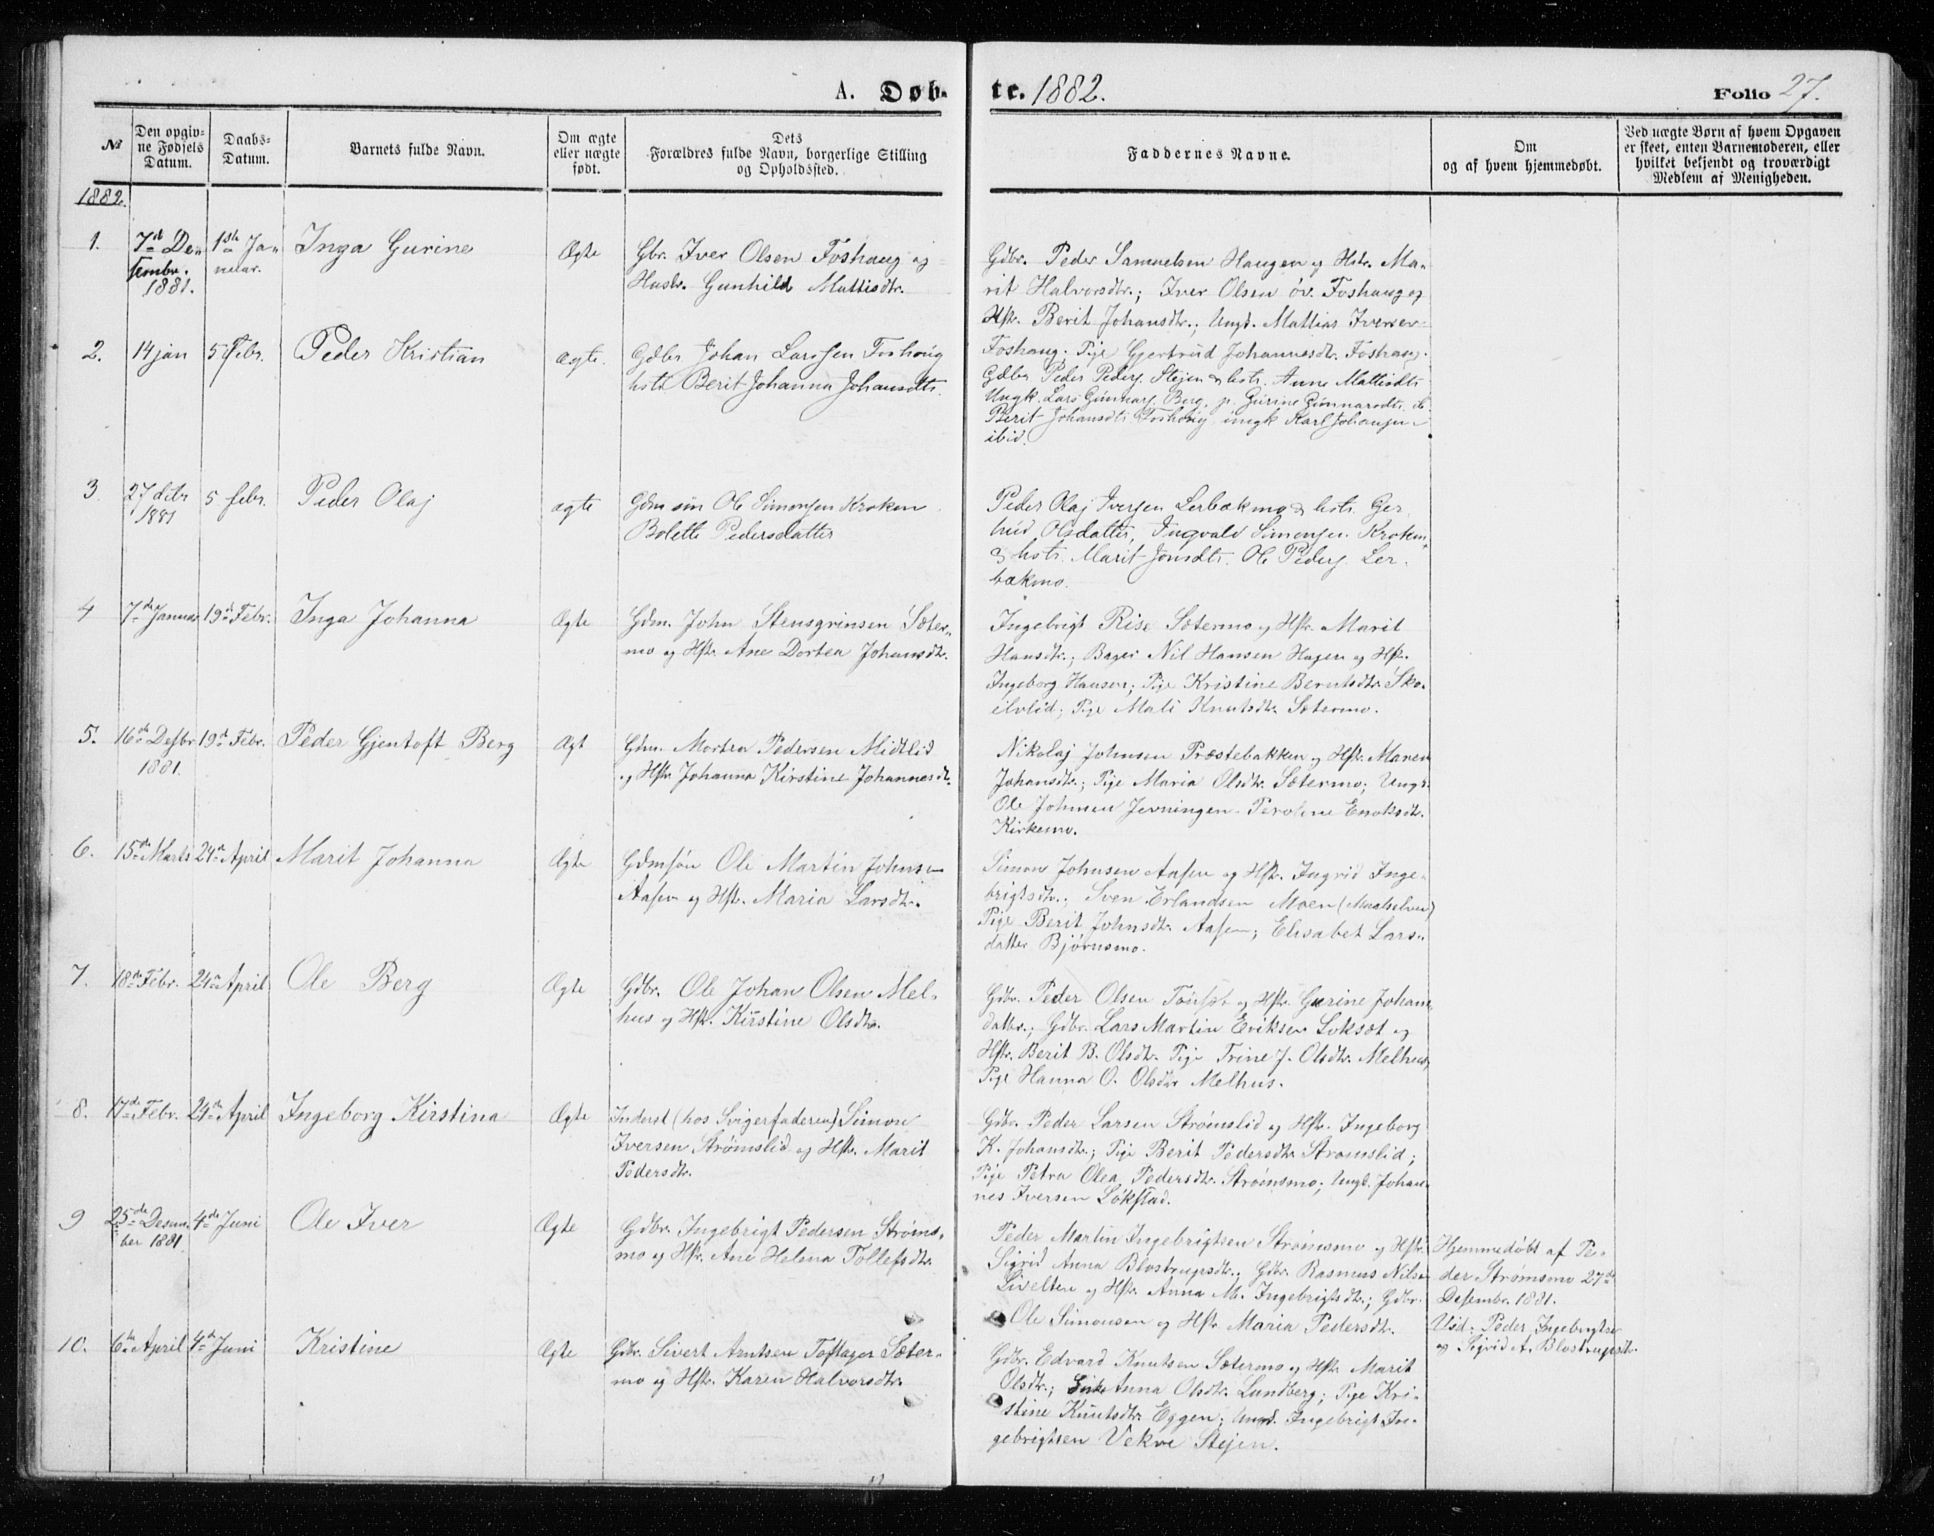 A. Døb-
te. 1882.
Folio 27.
№
Den opgiv-
ne Fødsels
Datum.
Daabs-
Datum.
Barnets fulde Navn.
Om ægte
eller uægte
født.
Dets
Forældres fulde Navn, borgerlige Stilling
og Opholdssted.
Faddernes Navne.
Om
og af hvem hjemmedøbt.
Ved uægte Børn af hvem Opgaven
er skeet, enten Barnemoderen, eller
hvilket bekjendt og troværdigt
Medlem af Menigheden.
1882.
1.
7d De-
sembr.
1881.
1ste Ja-
nuar.
Inga Gurine
Ægte
Gbr. Iver Olsen Foshaug og
Hustr. Gunhild Mattisdtr.
Gdbr. Peder Samuelsen Haugen og Hstr. Ma-
rit Halvorsdtr.; Iver Olsen øv. Foshaug og
Hstr. Berit Johansdtr.; Ungk. Mattias Iversen
Foshaug; Pige Gjertrud Johannesdtr. Foshaug.
2.
14 jan
5 febr.
Peder Kristian
ægte.
Gdbr. Johan Larssen Foshoug
hstr Berit Johanna Johansdtr.
Gdbr Peder Peders. Stejen & hstr. Anne Mattisdtr
Ungk. Lars Gunnars. Berg, p. Gurine Gunnarsdtr.
Berit Johansdtr Foshoug ungk Karl Johansen
ibid.
3
27 debr
1881
5 febr.
Peder Olaj
ægte
Gdm søn Ole Simonsen Kroken
Bolette Pedersdatter
Peder Olaj Iversen Lerbækmo & hstr. Ger
hud Olsdatter, Ingvald Simonsen Kroken
& hstr. Marit Jonsdtr. Ole Peders. Ler-
bækmo.
4
7de Januar
19d Febr.
Inga Johanna
Ægte
Gdm. John Stensgrinsen Sæter-
mo og Hstr. Ane Dortea Johansdtr.
Ingebrigt Rise Sætermo og Hstr. Marit
Hansdtr.; Bager Nil Hansen Hagen og Hstr.
Ingeborg Hansen; Pige Kristine Berntsdtr. Sko-
elvlid; Pige Mali Knutsdtr. Sætermo.
5.
16de Desbr
1881.
19d Febr.
Peder Gjentoft Berg
Ægt
Gdm. Morten Pedersen Midtlid
og Hstr. Johanna Kirstine Johannesdtr.
Nikolaj Johnsen Præstebakken og Hstr. Maren
Johansdtr.; Pige Maria Olsdtr. Sætermo; Ungk.
Ole Johnsen Jevningen. Peroline Enoksdtr.
Kirkemo.
6.
15de Marts
24de April
Marit Johanna
Ægte
Gdmsøn Ole Martin Johnsen
Aasen og Hstr. Maria Larsdtr.
Simon Johnsen Aasen og Hstr. Ingrid Inge-
brigtsdtr.; Sven Erlandsen Moen (Maalselven)
Pige Berit Johnsdtr. Aasen; Elisabet Lars-
datter Bjørnsmo.
7.
18de Febr.
24de April
Ole Berg
Ægte
Gdbr. Ole Johan Olsen Mel-
hus og Hstr. Kirstine Olsdtr.
Gdbr. Peder Olsen Tønset og Hstr. Gurine Johans
datter.; Gdbr. Lars Martin Eriksen Løksæt og
Hstr. Berit B. Olsdtr. Pige Trine J. Olsdtr. Melhus,
Pige Hanna O. Olsdtr Melhus.
8.
17de Febr.
24de April
Ingeborg Kirstina
Ægte
Inderst (hos Svigerfaderen) Simon
Iversen Strømslid og Hstr. Marit
Pedersdtr.
Gdbr. Peder Larsen Strømslid og Hstr. Ingeborg
K. Johansdtr.; Pige Berit Pedersdtr. Strømslid;
Pige Petra Olea Pedersdtr. Strømsmo; Ungk. Johan-
nes Iversen Løkstad.
9
25de Desem
ber 1881.
4de Juni
Ole Iver
Ægte
Gdbr. Ingebrigt Pedersen Strøms-
mo og Hstr. Ane Helena Tollefsdtr.
Peder Martin Ingebrigtsen Strømsmo og Hstr.
Sigrid Anna Blostrupsdtr.; Gdbr. Rasmus Nilsen
og Hstr. Anna M. Ingebrigtsdtr.; Gdbr.
Ole Simonsen og Hstr Maria Pedersdtr.
Hjemmedøbt af Pe-
der Strømsmo 27de
Desembr. 1881.
Vid. Peder Ingebrigtsen
og Sigrid A. Blostrupsdtr.
10.
6te April
4de Juni
Kristine
Ægte
Gdbr. Sivert Arntsen Toftager Sæter-
mo og Hstr. Karen Halvorsdtr.
Gdbr. Edvard Knutsen Sætermo og Hstr Marit
Olsdtr.; Enke Anna Olsdtr. Lundberg; Pige Kri-
stine Knutsdtr. Eggen; Ungk. Ingebrigt In-
gebrigtsen Vekve Stejen.